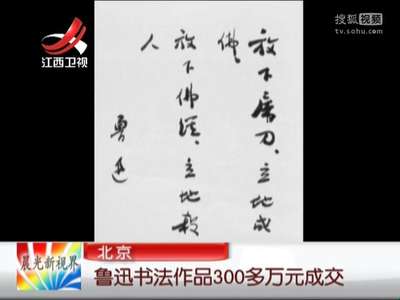 江西卫视
搜狐视频
tv.sohu.com
放下屠刀、立地成
佛
放下佛经、立地杀
人
鲁迅
晨光新视界
北京
鲁迅书法作品300多万元成交